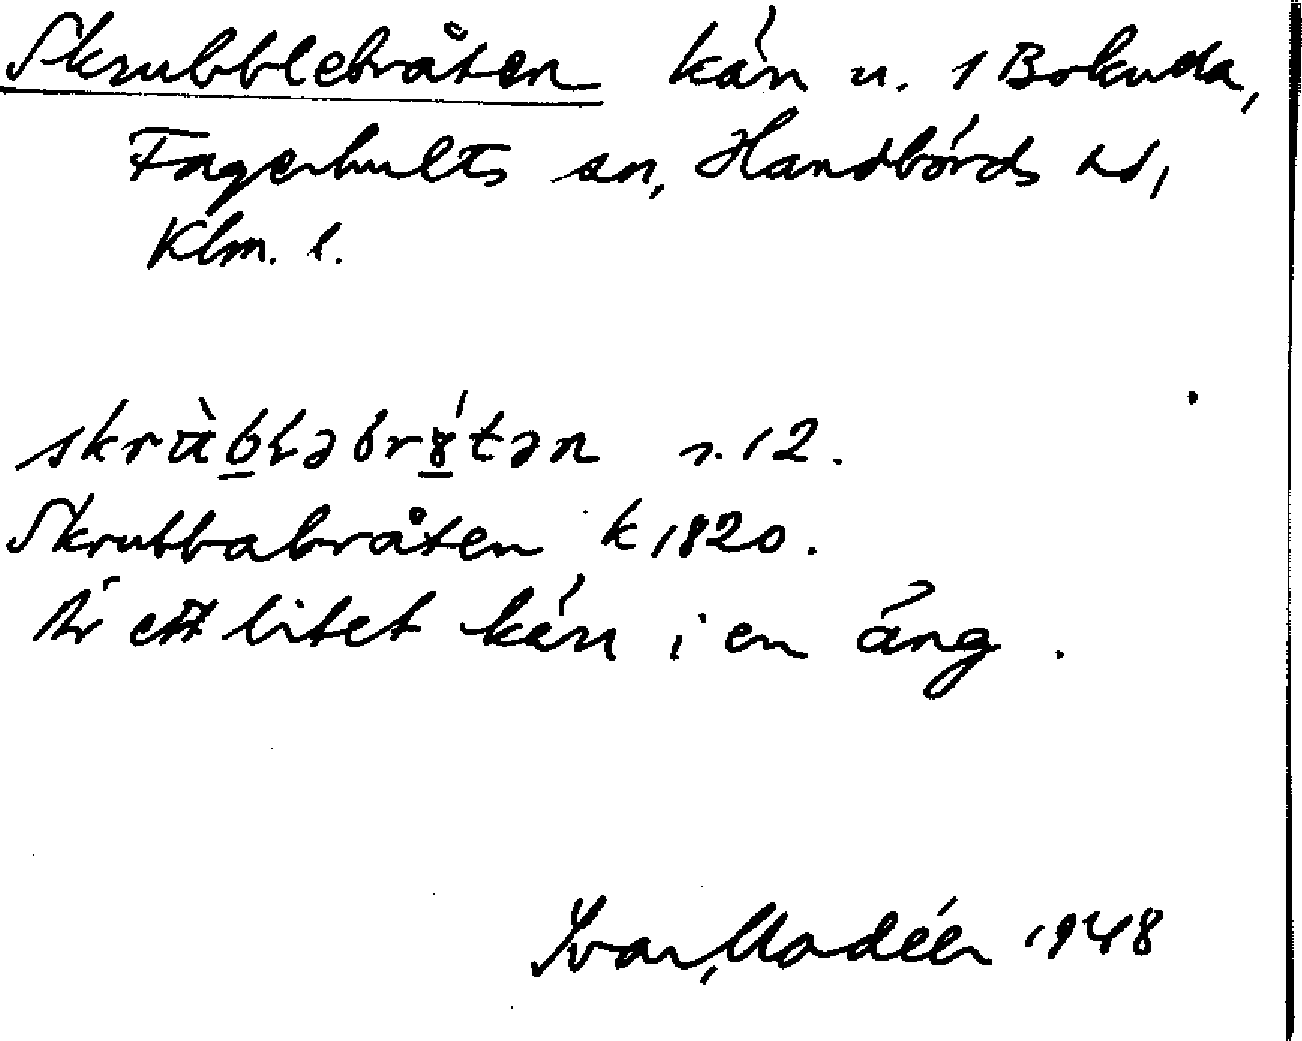 Skrubblebråten kärr u. 1 Bokuda,
Fagerhults sn, Handbörds hd,
Klm. l.
skrùblabrɤ́tən s. 12.
Skrubbabråten k 1820.
Är ett litet kärr i en äng.
Ivar Modéer 1948